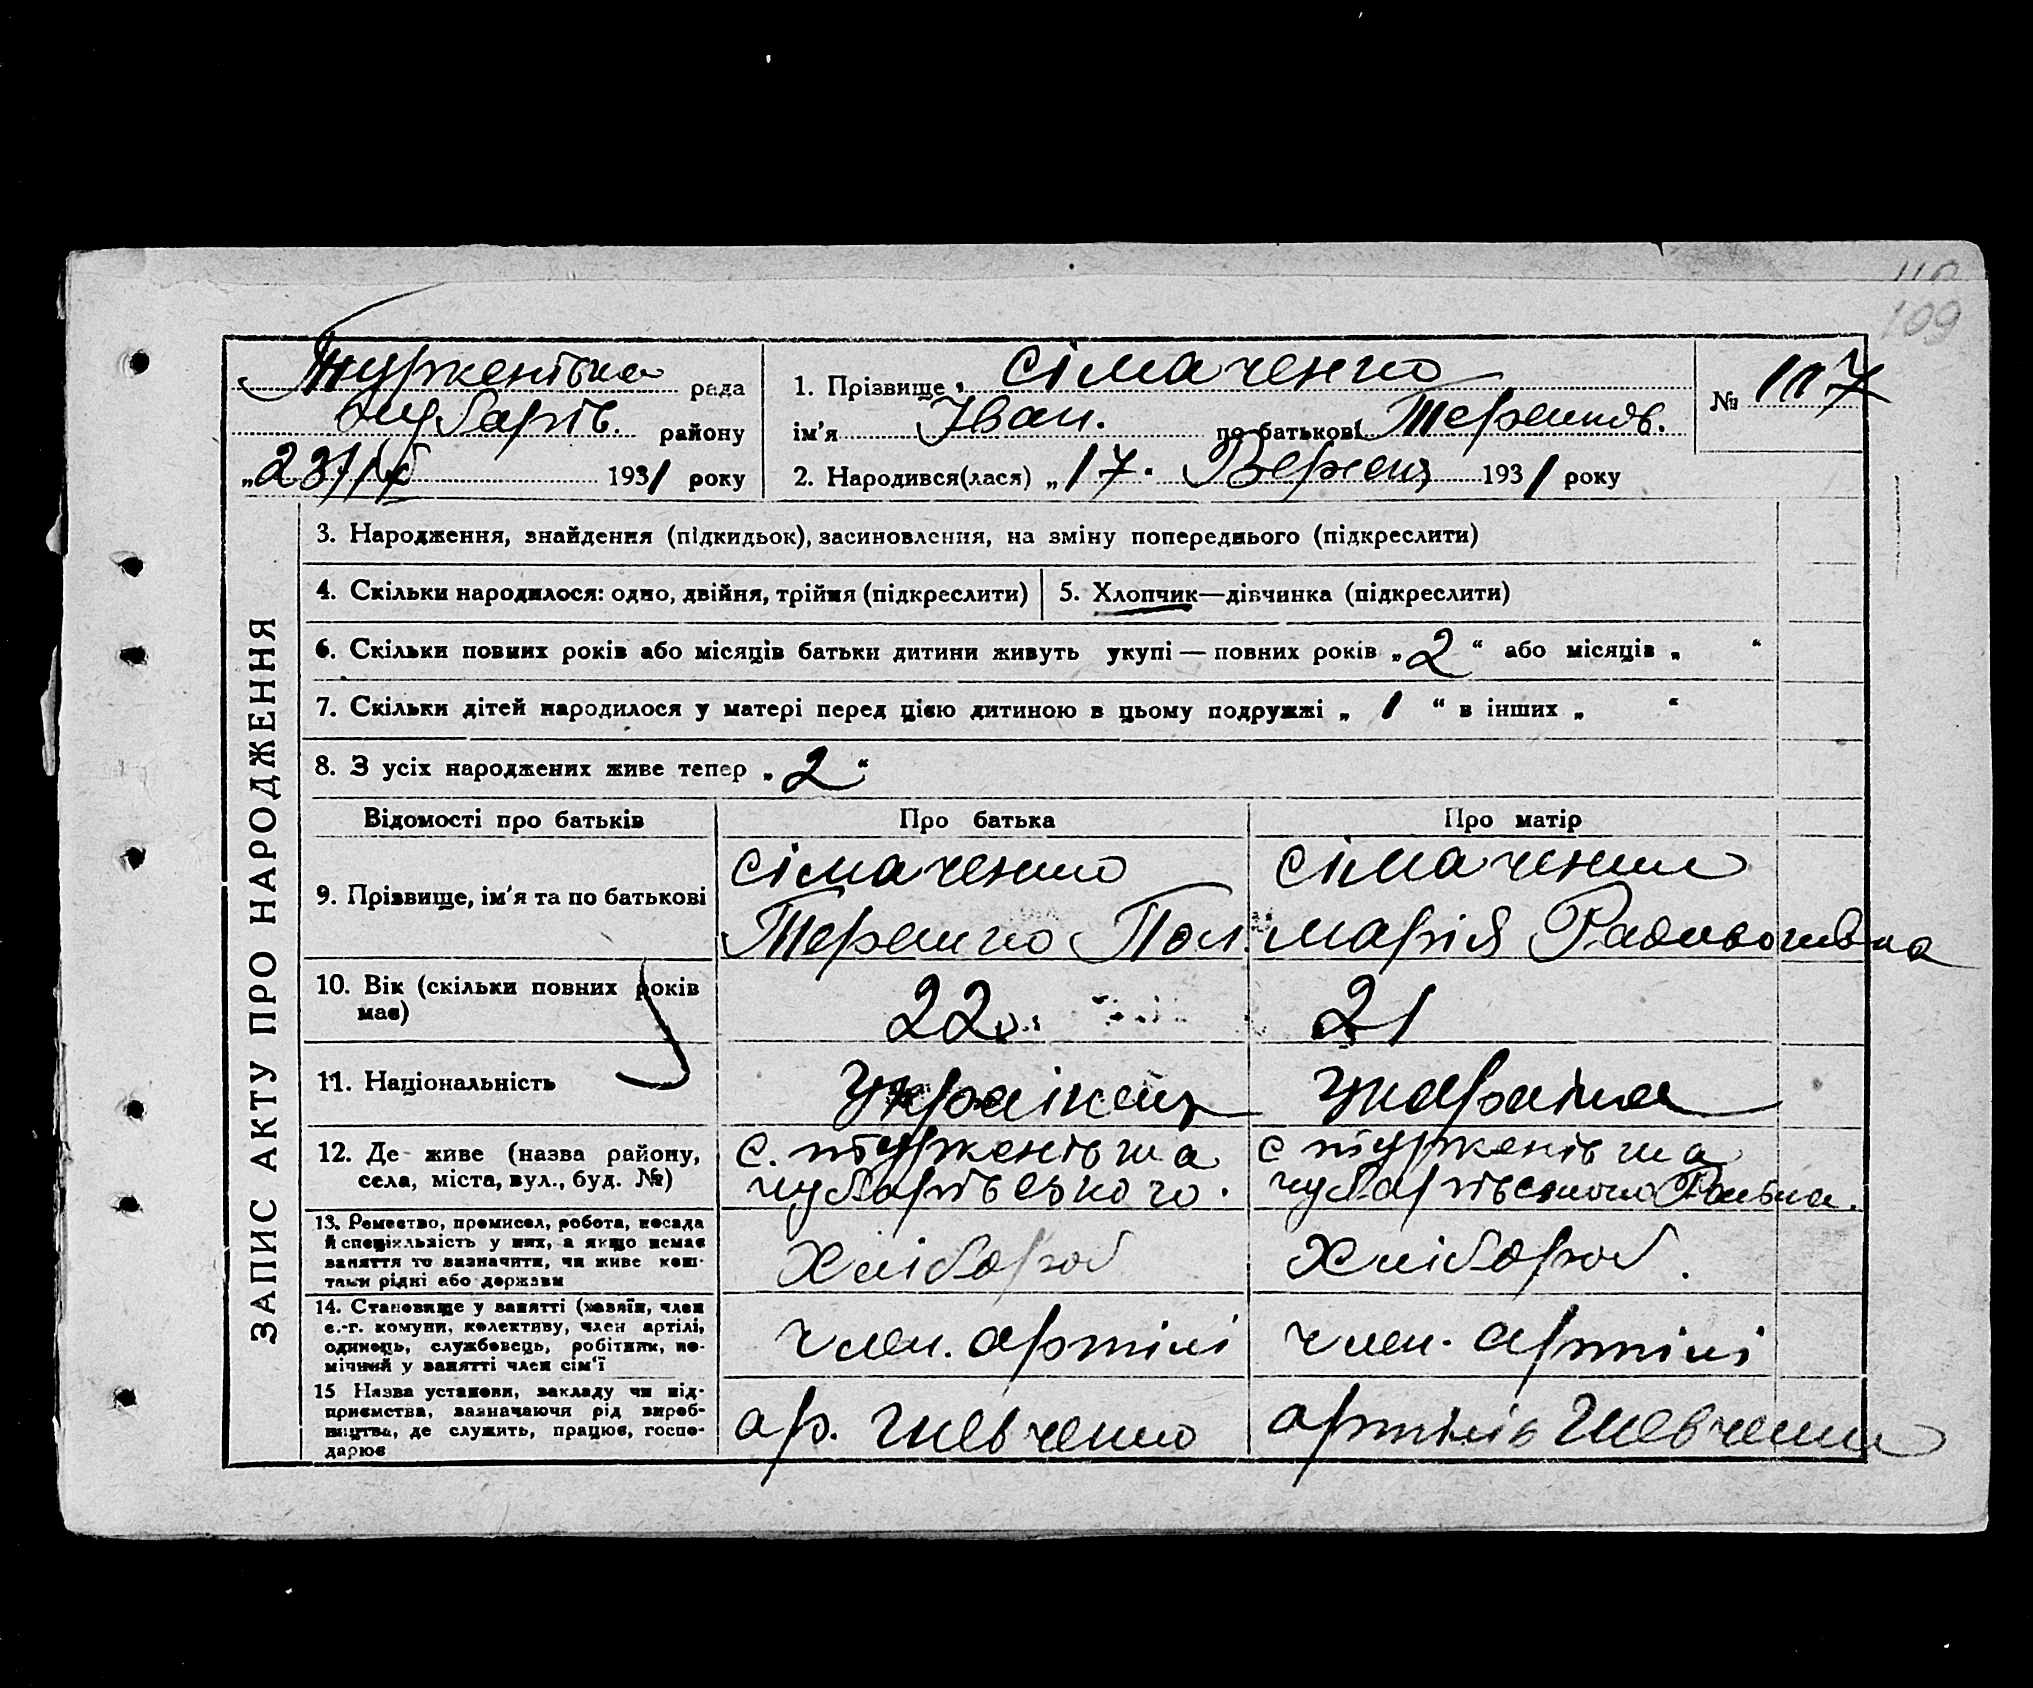 110
109
Туркенівка рада
Чубарів. району
„23/IX 1931 року
1. Прізвище Сімаченко
ім'я Іван. по батькові Терешков.
2. Народився(лася) „17. Вересня 1931 року
№ 117
ЗАПИС АКТУ ПРО НАРОДЖЕННЯ
3. Народження, знайдення (підкидьок), засиновлення, на зміну попереднього (підкреслити)
4. Скільки народилося: одно, двійня, трійня (підкреслити)
5. Хлопчик—дівчинка (підкреслити)
6. Скільки повних років або місяців батьки дитини живуть укупі — повних років „2“ або місяців „ “
7. Скільки дітей народилося у матері перед цією дитиною в цьому подружжі „ 1 “ в інших „ “
8. З усіх народжених живе тепер „2“
Відомості про батьків Про батька Про матір
9. Прізвище, ім'я та по батькові
Сімаченко
Терешко Пол.
Сімаченко
Марія
10. Вік (скільки повних років
має)
22
21
11. Національність
Українец
Украінка
12. Де живе (назва району,
села, міста, вул., буд. №)
с. Туркенівка
Чубарівського.
с Туркенівка
Чубарівського
13. Ремество, промисел, робота, посада
й спеціяльність у них, а якщо немає
заняття то зазначити, чи живе кош-
тами рідні або держави
Хлібороб
Хлібороб.
14. Становище у занятті (хазяїн, член
с.-г. комуни, колективу, член артілі,
одинець, службовець, робітник, по-
мічний у занятті член сім'ї
член. артілі
член. артілі
15 Назва установи, закладу чи під-
приємства, зазначаючи рід вироб-
ництва, де служить, працює, госпо-
дарює
ар. Шевченко
артіль Шевченко